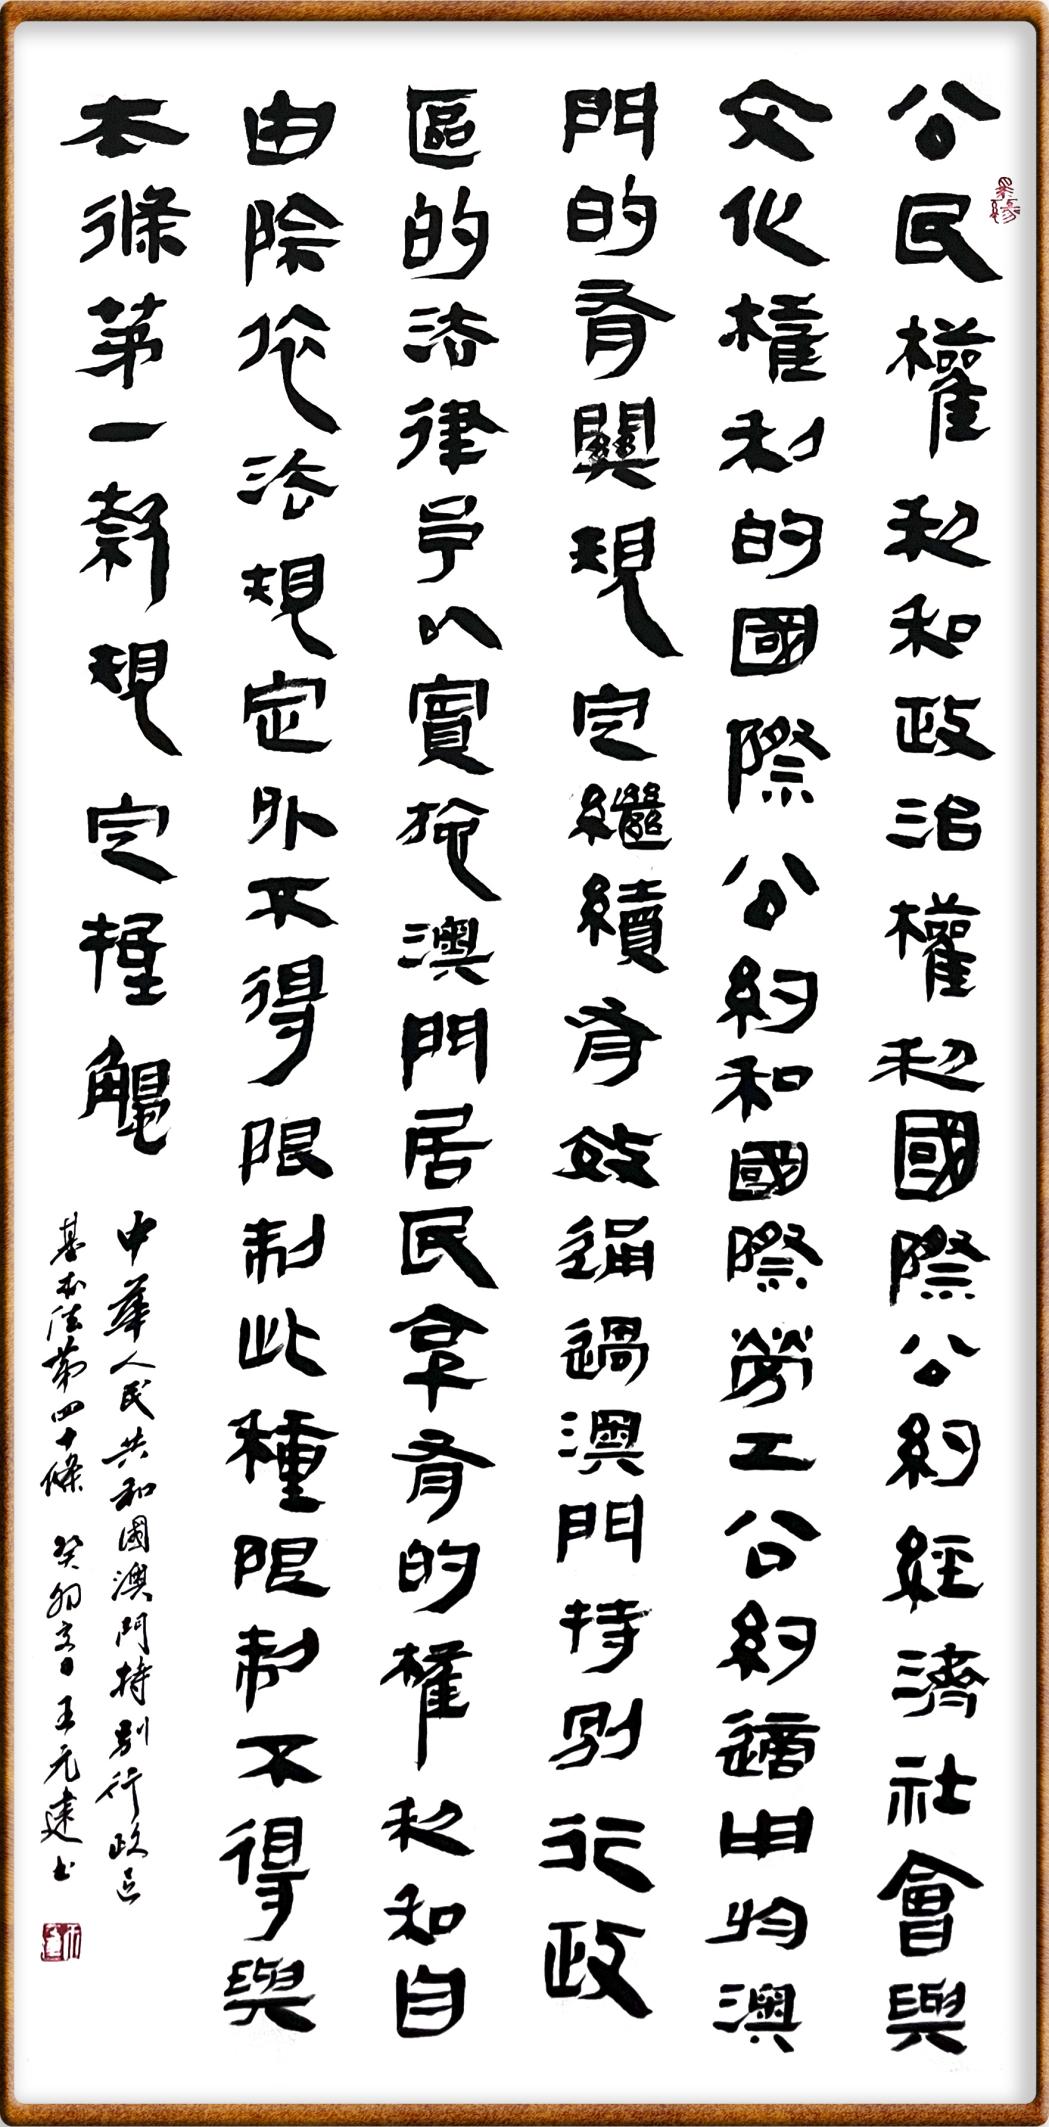 公民權利和政治權利國際公約經濟社會與
文化權利的國際公約和國際勞工公約適用於澳
門的有關規定繼續有效通過澳門特別行政
區的法律予以實施澳門居民享有的權利和自
由除依法規定外不得限制此種限制不得與
本條第一款規定抵觸
中華人民共和國澳門特別行政區
基本法第四十條 癸卯 王元建書
墨緣